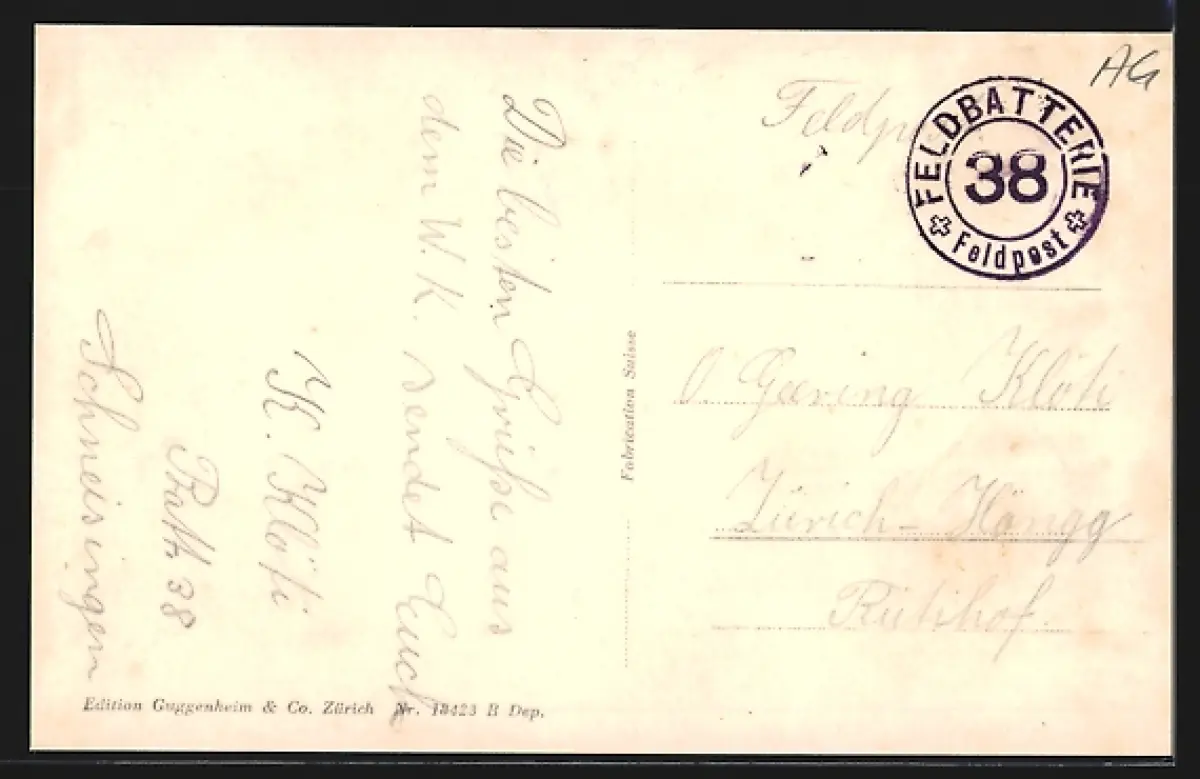 AG
Feldp
FELDBATTERIE
38
Feldpost
Die besten Grüße aus
dem W. K. sendet Euch
K. Klöti
Batt. 38
Schneisingen
Fabrication Suisse
Geering Klöti
Zürich-Höngg
Rütihof.
Edition Guggenheim & Co. Zürich Nr. 13423 B Dep.